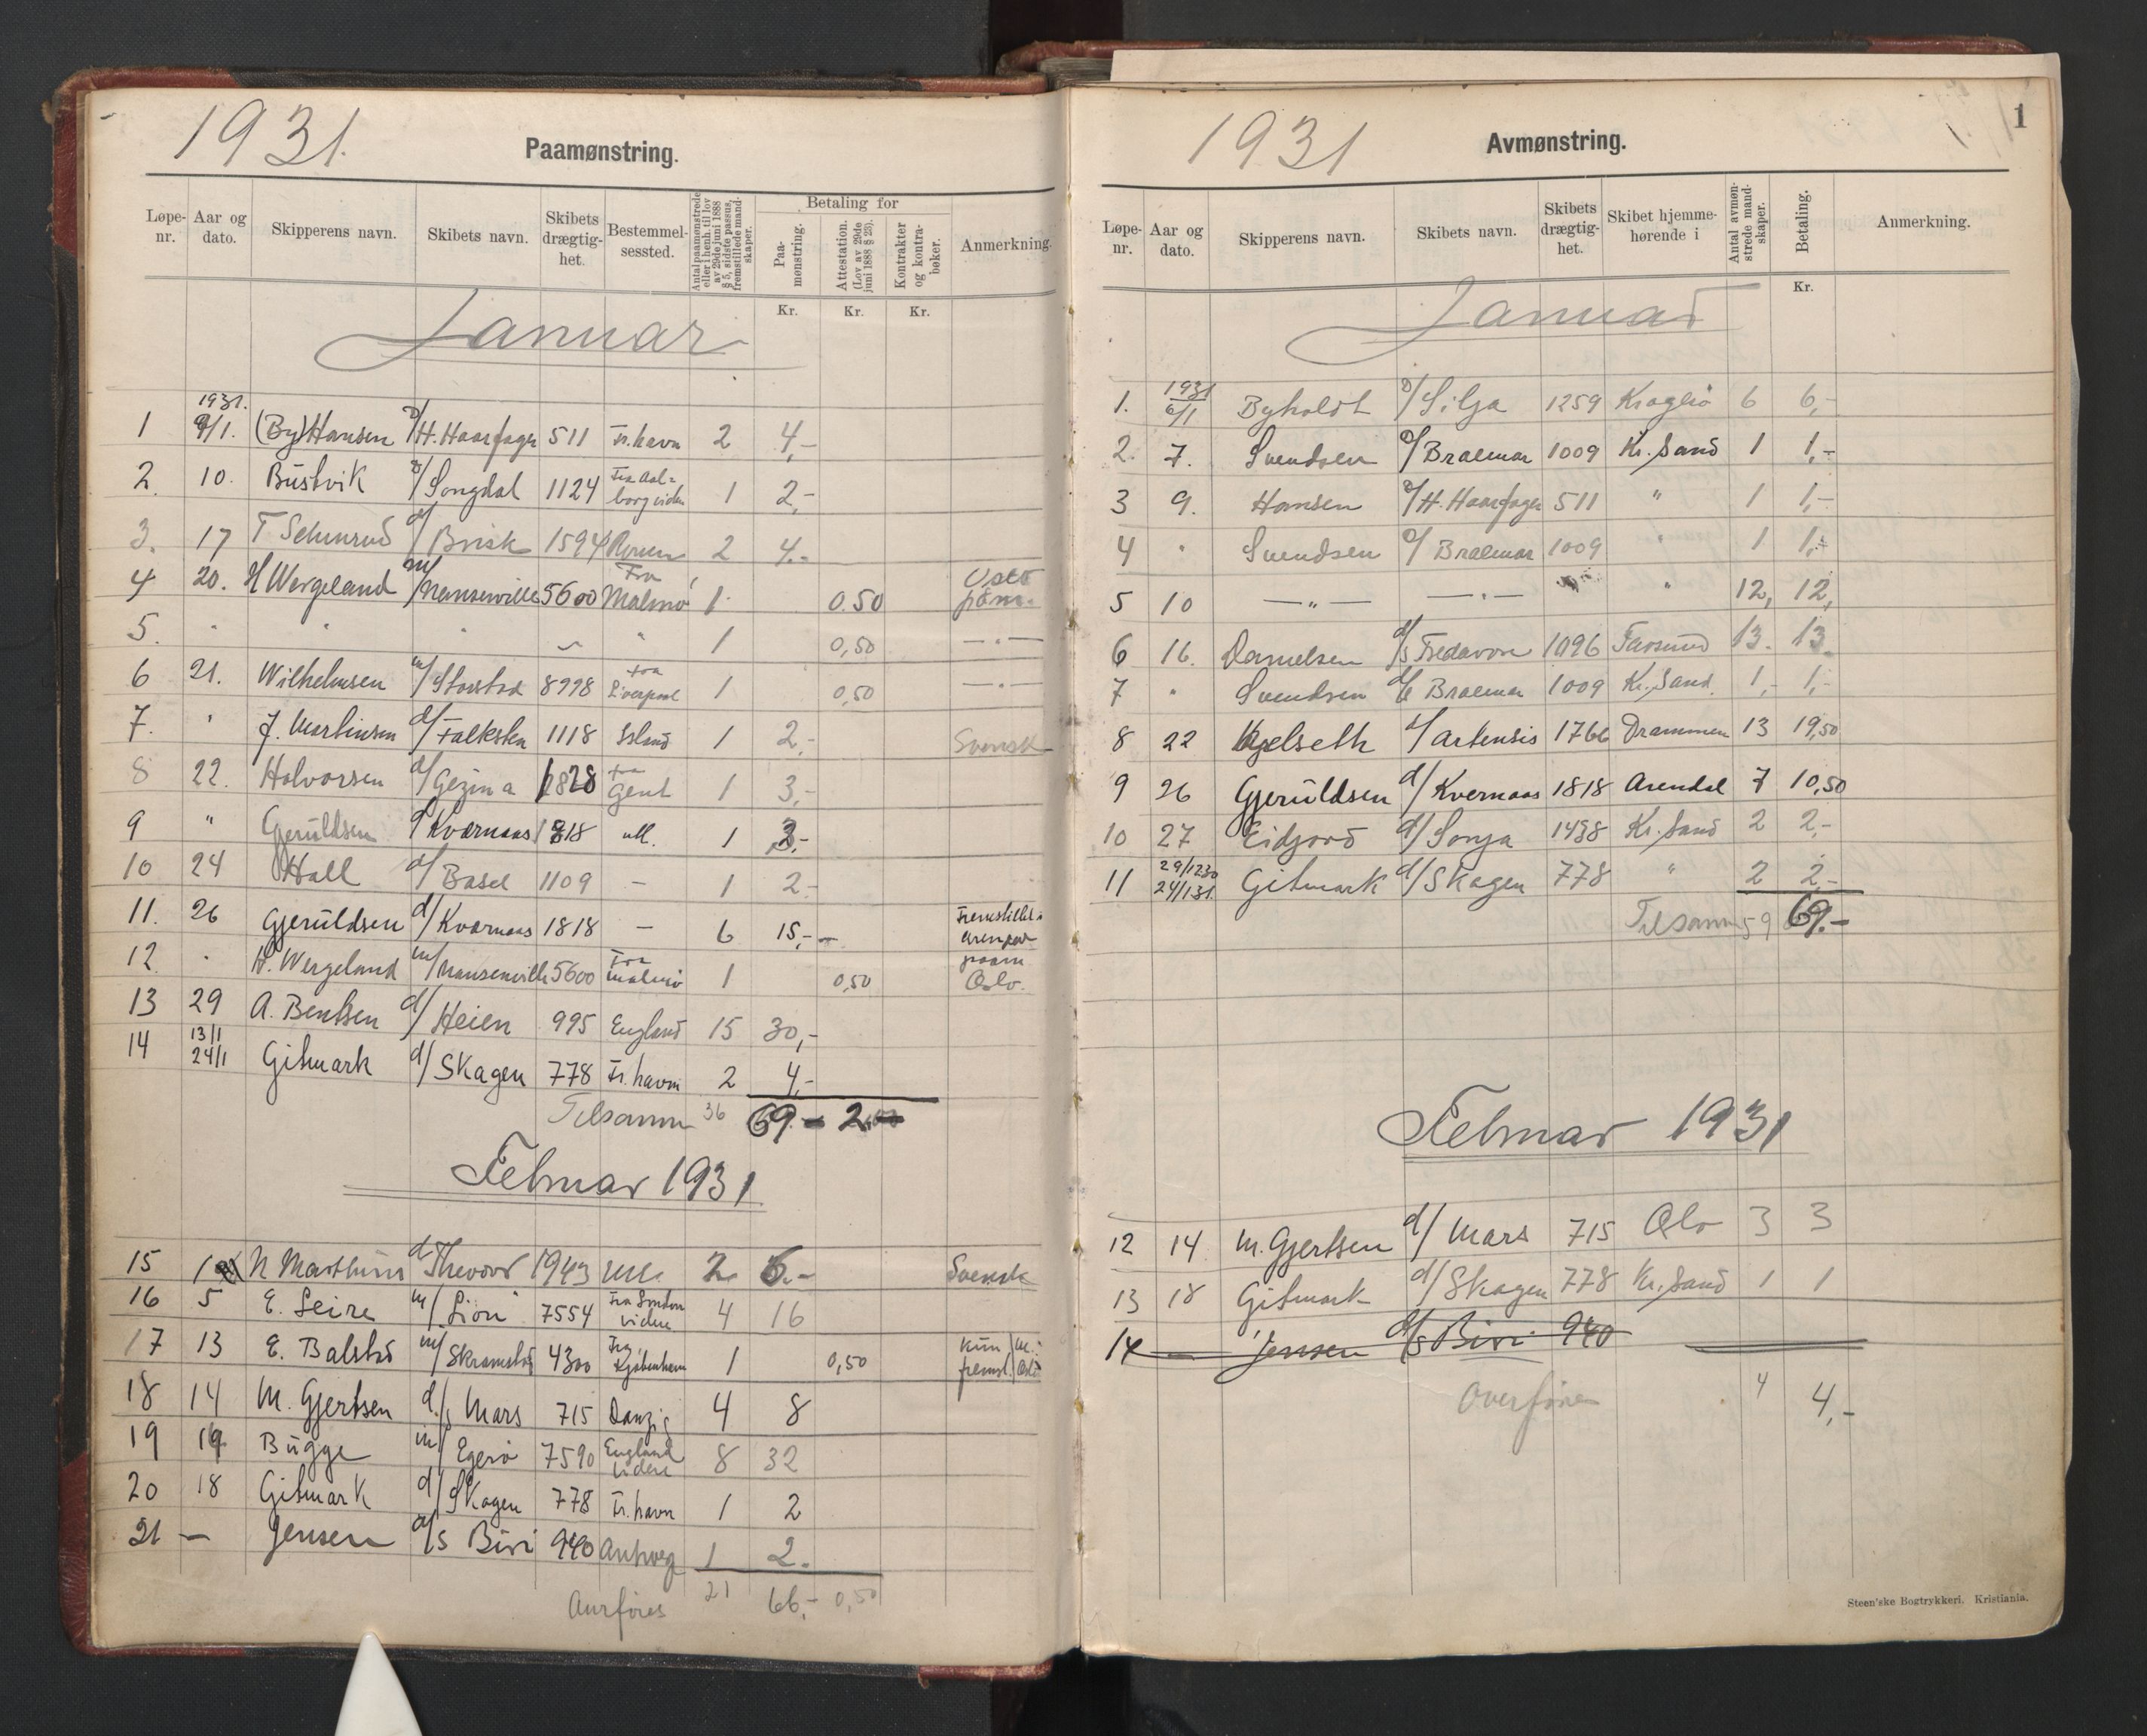 1931.
Paamønstring.
Løpe-nr. Aar og dato. Skipperens navn. Skibets navn. Skibets drægtig-het. Bestemmel-sessted. Antal paamønstrede eller i henh. til lov av 29de juni 1888 § 5, sidste passus, fremstillede mand-skaper. Betaling for Paa-mønstring. Attestation. (Lov av 29de juni 1888 § 25). Kontrakter og kontra-bøker. Anmerkning.
Kr. Kr. Kr.
Januar
1 1931. 9/1. (By) Hansen d/ H. Haarfager 511 Fr.havn 2 4,-
2. 10. Bustvik d/ Songdal 1124 Fra Aal-borg videre 1 2,-
3. 17 T d/ Brisk 1594 Rouen 2 4.-
4 20. H Wergeland m/ Nanseville 5600 Fra Malmö 1 0.50 Oslo
5. " " " " 1 0,50 — " —
6 21. Wilhelmsen m/ Storstad 8998 fra Liverpool 1 0,50 — " —
7. " J. Martinsen d/ Falksten 1118 Island 1 2,- Svensk
8 22. Halvorsen d/ Gezina 1828 fra Gent 1 3,-
9 " Gjeruldsen d/ Kvernaas 1818 utl. 1 3,-
10 24 Hall d/ Basel 1109 — 1 2.-
11. 26 Gjeruldsen d/ Kvernaas 1818 — 6 15,-
12. " H. Wergeland m/ Nanseville 5600 Fra Malmö 1 0,50 Oslo.
13 29 A. Bentsen d/ Heien 995 England 15 30,-
14 13/1 24/1 Gitmark d/ Skagen 778 Fr.havn 2 4,-
Tilsamm 36 69.- 2.00
Februar 1931
15 N Marthins d. Thevord 1943 utl. 2 6.- Svensk
16 5 E. Seire m/ Lion 7554 Fra London videre 4 16
17 13 E. Balstad m/ Skramstad 4300 Fra Kjøbenhavn 1 0,50 kun fremst.
18 14 M. Gjertsen d/s Mars 715 Danzig 4 8
19 14 Bugge m/ Egerö 7590 England videre 8 32
20 18 Gitmark d/ Skagen 778 Fr.havn 1 2
21 — Jensen d/s Biri 940 Antverp 1 2.
21 66,- 0,50
1
1931
Avmønstring.
Løpe-nr. Aar og dato. Skipperens navn. Skibets navn. Skibets drægtig-het. Skibet hjemme-hørende i Antal avmøn-strede mand-skaper. Betaling. Anmerkning.
Kr.
Januar
1. 1931 6/1 Byholdt d/ Silja 1259 Kragerö 6 6,-
2. 7. Svendsen d/ Braemar 1009 Kr. Sand 1 1,-
3 9. Hansen d/ H. Haarfager 511 " 1 1,-
4 " Svendsen d/ Braemar 1009 " 1 1,-
5 10 — " — — " — " 12, 12,
6 16. Danielsen d/s Fredavore 1096 Farsund 13. 13.
7 " Svendsen d/s Braemar 1009 Kr. Sand. 1,- 1,-
8 22 Kjelseth d/ Artensis 1766 Drammen 13 19,50
9 26 Gjeruldsen d/ Kvernaas 1818 Arendal 7 10,50
10 27 Eidjord d/ Sonja 1498 Kr. Sand 2 2,-
11 29/1230 24/131. Gitmark d/ Skagen 778 " 2 2,-
Tilsamm 59 69.-
Februar 1931
12 14. M. Gjertsen d/ Mars 715 Oslo 3 3
13 18 Gitmark d/ Skagen 778 Kr. Sand 1 1
14 — Jensen d/s Biri 940
Overföres 4 4,-
Steen'ske Bogtrykkeri. Kristiania.